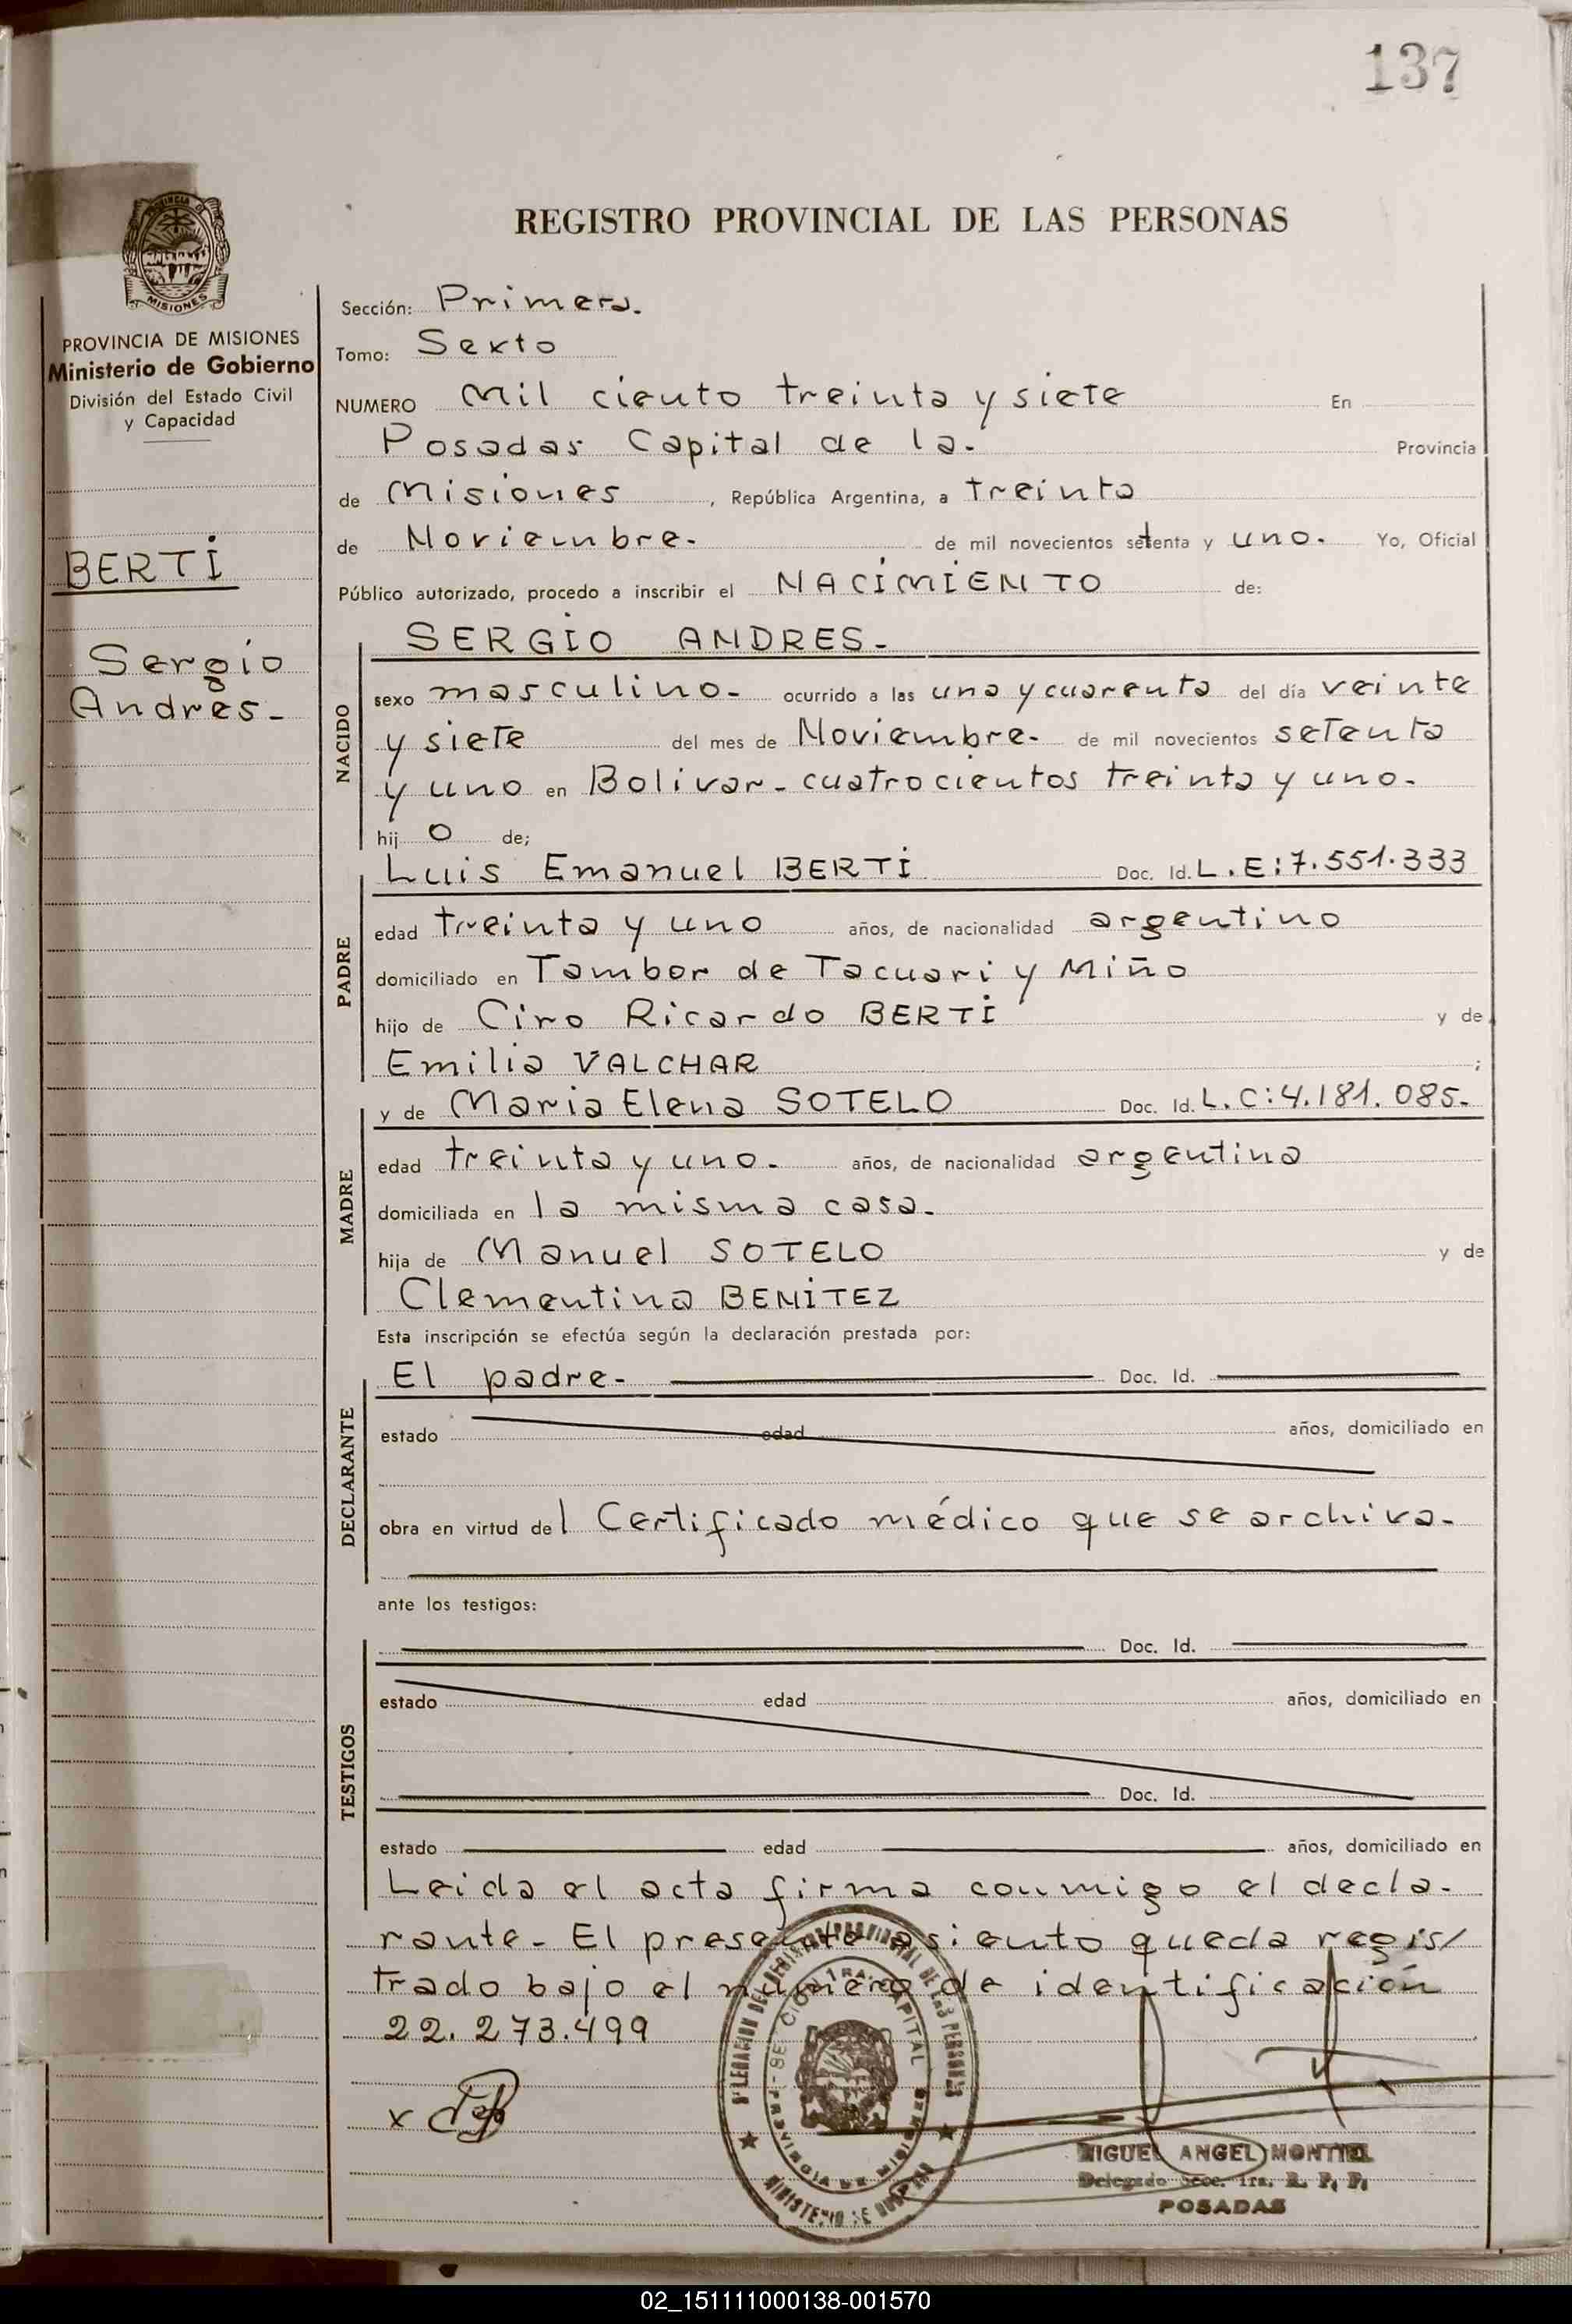 137
REGISTRO PROVINCIAL DE LAS PERSONAS
MISIONES
PROVINCIA DE MISIONES
Ministerio de Gobierno
División del Estado Civil
y Capacidad
BERTI
Sergio
Andres-
Sección: Primera.
Tomo: Sexto
NUMERO Mil ciento treinta y siete En
Posadas Capital de la- Provincia
de Misiones, República Argentina, a treinta
de Noviembre- de mil novecientos setenta y uno. Yo, Oficial
Público autorizado, procedo a inscribir el NACIMIENTO de:
SERGIO ANDRES-
NACIDO
sexo masculino- ocurrido a las una y cuarenta del día veinte
y siete del mes de Noviembre- de mil novecientos setenta
y uno en Bolivar- cuatrocientos treinta y uno-
hijo de;
PADRE
Luis Emanuel BERTI Doc. Id. L.E: 7.551.333
edad treinta y uno años, de nacionalidad argentino
domiciliado en Tambor de Tacuari y Miño
hijo de Ciro Ricardo BERTI y de
Emilia VALCHAR ;
MADRE
y de Maria Elena SOTELO Doc. Id. L.C: 4.181.085-
edad treinta y uno- años, de nacionalidad argentina
domiciliada en la misma casa-
hija de Manuel SOTELO y de
Clementina BENITEZ
Esta inscripción se efectúa según la declaración prestada por:
DECLARANTE
El padre- Doc. Id.
estado edad años, domiciliado en
obra en virtud del Certificado médico que se archiva-
ante los testigos:
TESTIGOS
Doc. Id.
estado edad años, domiciliado en
Doc. Id.
estado edad años, domiciliado en
Leida el acta firma conmigo el decla-
rante- El presente asiento queda regis/
trado bajo el número de identificación
22.273.499
x
MIGUEL ANGEL MONTIEL
Delegado Secc. 1ra. R. P. P.
POSADAS
02_151111000138-001570